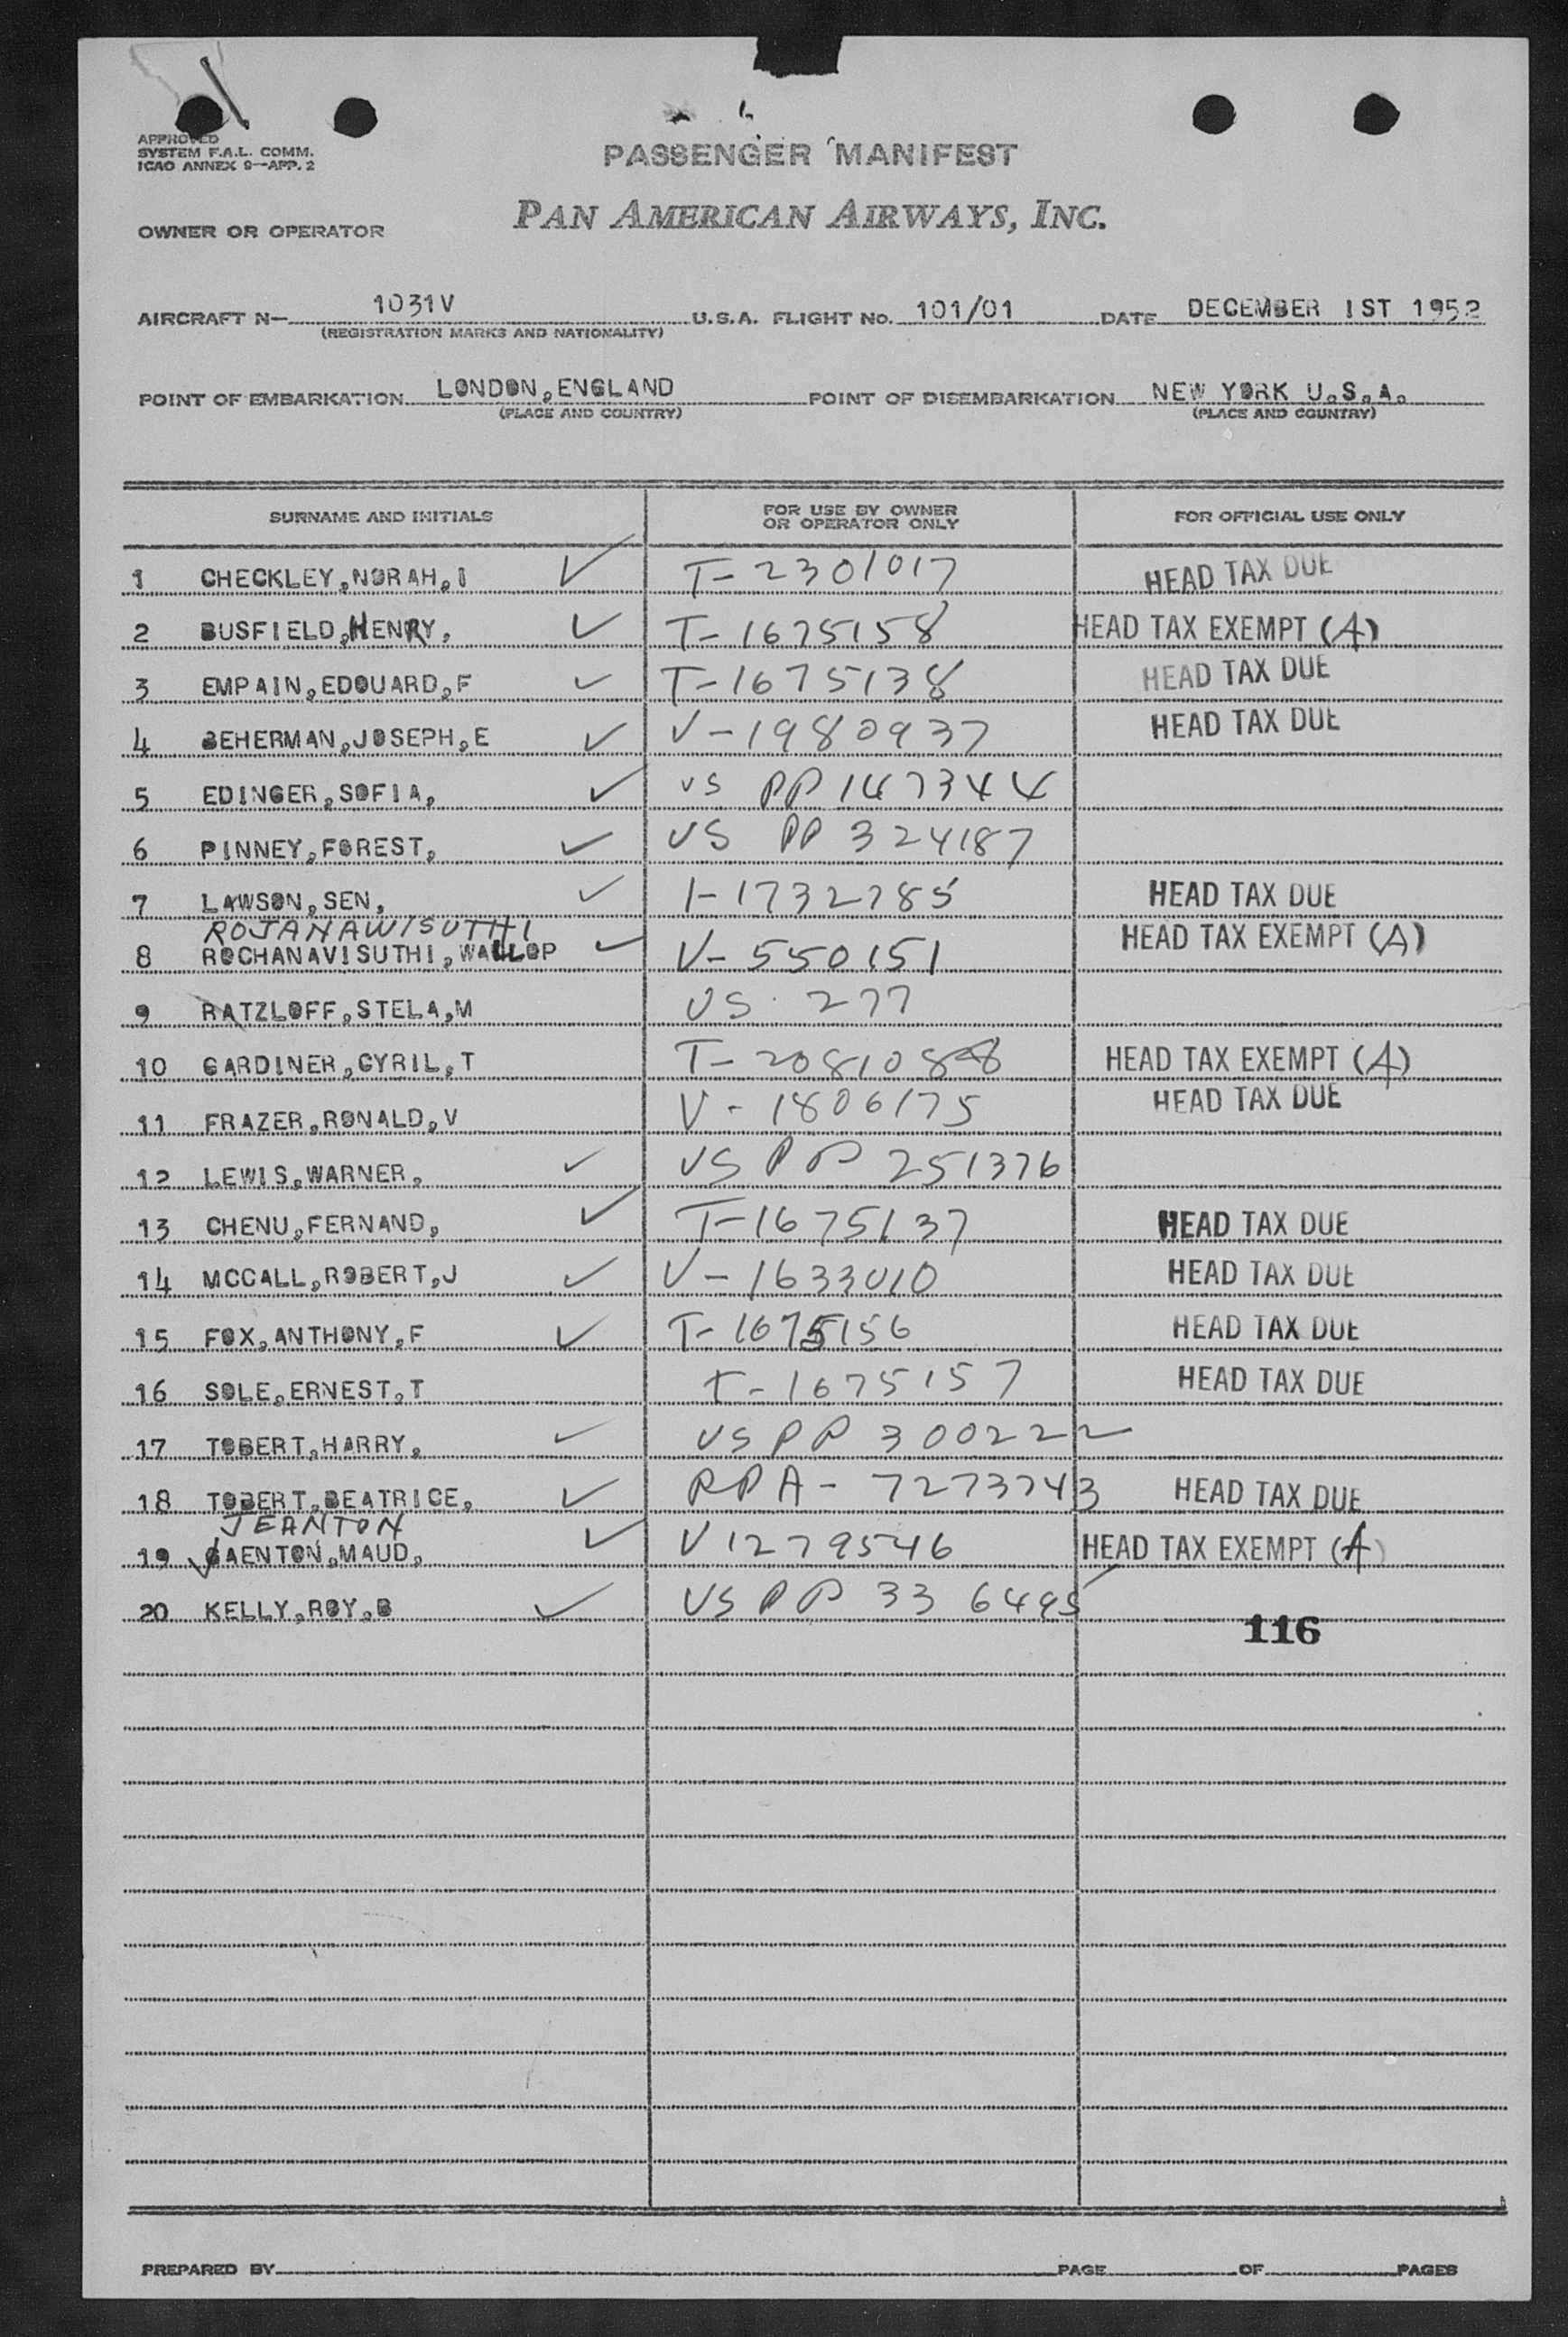 APPROVED
SYSTEM F.A.L. COMM.
ICAO ANNEX 9—APP. 2
PASSENGER MANIFEST
OWNER OR OPERATOR PAN AMERICAN AIRWAYS, INC.
AIRCRAFT N— 1031V U.S.A. FLIGHT No. 101/01 DATE DECEMBER 1ST 1952
(REGISTRATION MARKS AND NATIONALITY)
POINT OF EMBARKATION LONDON,ENGLAND POINT OF DISEMBARKATION NEW YORK U.S.A.
(PLACE AND COUNTRY) (PLACE AND COUNTRY)
SURNAME AND INITIALS FOR USE BY OWNER OR OPERATOR ONLY FOR OFFICIAL USE ONLY
1 CHECKLEY,NORAH,I ✓ T-2301017 HEAD TAX DUE
2 BUSFIELD,HENRY, ✓ T-1675158 HEAD TAX EXEMPT (A)
3 EMPAIN,EDOUARD,F ✓ T-1675138 HEAD TAX DUE
4 BEHERMAN,JOSEPH,E ✓ V-1980937 HEAD TAX DUE
5 EDINGER,SOFIA, ✓ US PP 147344
6 PINNEY,FOREST, ✓ US PP 324187
7 LAWSON,SEN, ✓ I-1732785 HEAD TAX DUE
ROJANAWISUTHI
8 ROCHANAVISUTHI,WALLOP ✓ V-550151 HEAD TAX EXEMPT (A)
9 RATZLOFF,STELA,M US 277
10 GARDINER,CYRIL,T T-2081088 HEAD TAX EXEMPT (A)
11 FRAZER,RONALD,V V-1806175 HEAD TAX DUE
12 LEWIS,WARNER, ✓ US PP 251376
13 CHENU,FERNAND, ✓ T-1675137 HEAD TAX DUE
14 MCCALL,ROBERT,J ✓ V-1633010 HEAD TAX DUE
15 FOX,ANTHONY,F ✓ T-1675156 HEAD TAX DUE
16 SOLE,ERNEST,T T-1675157 HEAD TAX DUE
17 TOBERT,HARRY, ✓ US PP 300222
18 TOBERT,BEATRICE, ✓ RPA-7273743 HEAD TAX DUE
JEANTON
19 JAENTON,MAUD, ✓ V1279546 HEAD TAX EXEMPT (A)
20 KELLY,ROY,B ✓ US PP 336495
116
PREPARED BY PAGE OF PAGES